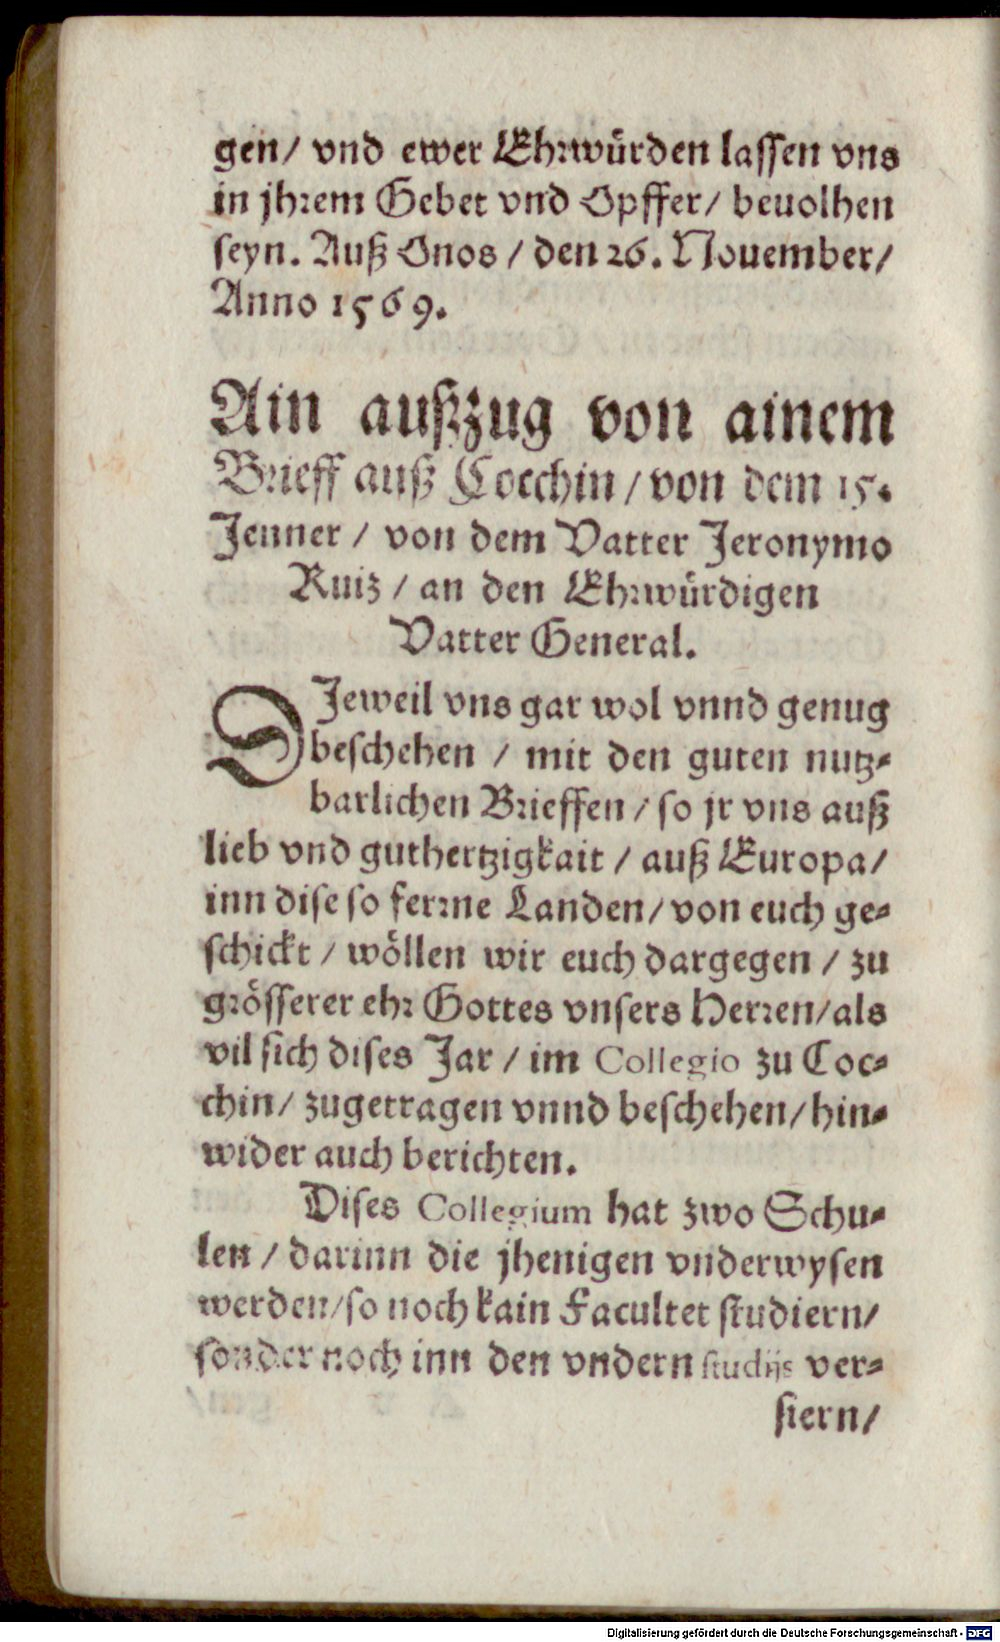 gen/ vnd ewer Ehrwürden lassen vns
in jhrem Gebet vnd Opffer/ beuolhen
seyn. Auß Onos / den 26. Nouember/
Anno 1569.
Ain außzug von ainem
Brieff auß Cocchin / von dem 15.
Jenner / von dem Vatter Jeronymo
Ruiz / an den Ehrwürdigen
Vatter General.
DJeweil vns gar wol vnnd genug
beschehen / mit den guten nutz-
barlichen Brieffen / so jr vns auß
lieb vnd guthertzigkait / auß Europa/
inn dise so ferrne Landen/ von euch ge-
schickt / wöllen wir euch dargegen / zu
grösserer ehr Gottes vnsers Herren/als
vil sich dises Jar / im Collegio zu Coc-
chin/ zugetragen vnnd beschehen/ hin-
wider auch berichten.
Dises Collegium hat zwo Schu-
len / darinn die jhenigen vnderwysen
werden/so noch kain Facultet studiern/
sonder noch inn den vndern studijs ver-
siern/
Digitalisierung gefördert durch die Deutsche Forschungsgemeinschaft - DFG